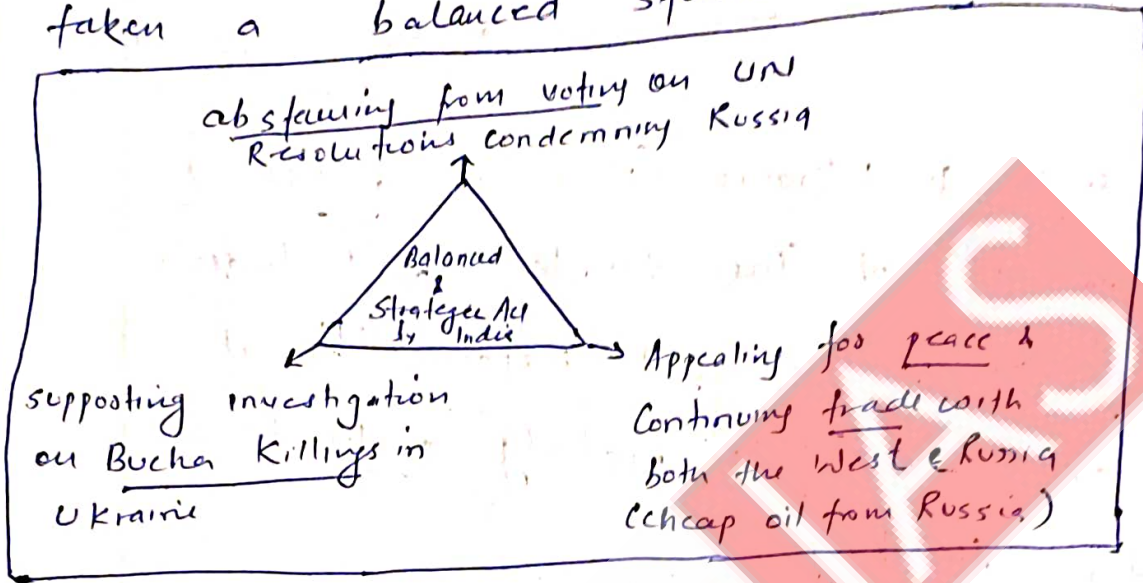 taken a balanced
abstaining from voting on UN
Resolutions condemning Russia
Balanced
&
Strategic Act
by India
supporting investigation
on Bucha Killings in
Ukraine
Appealing for peace &
Continuing trade with
both the West & Russia
(cheap oil from Russia)
IAS